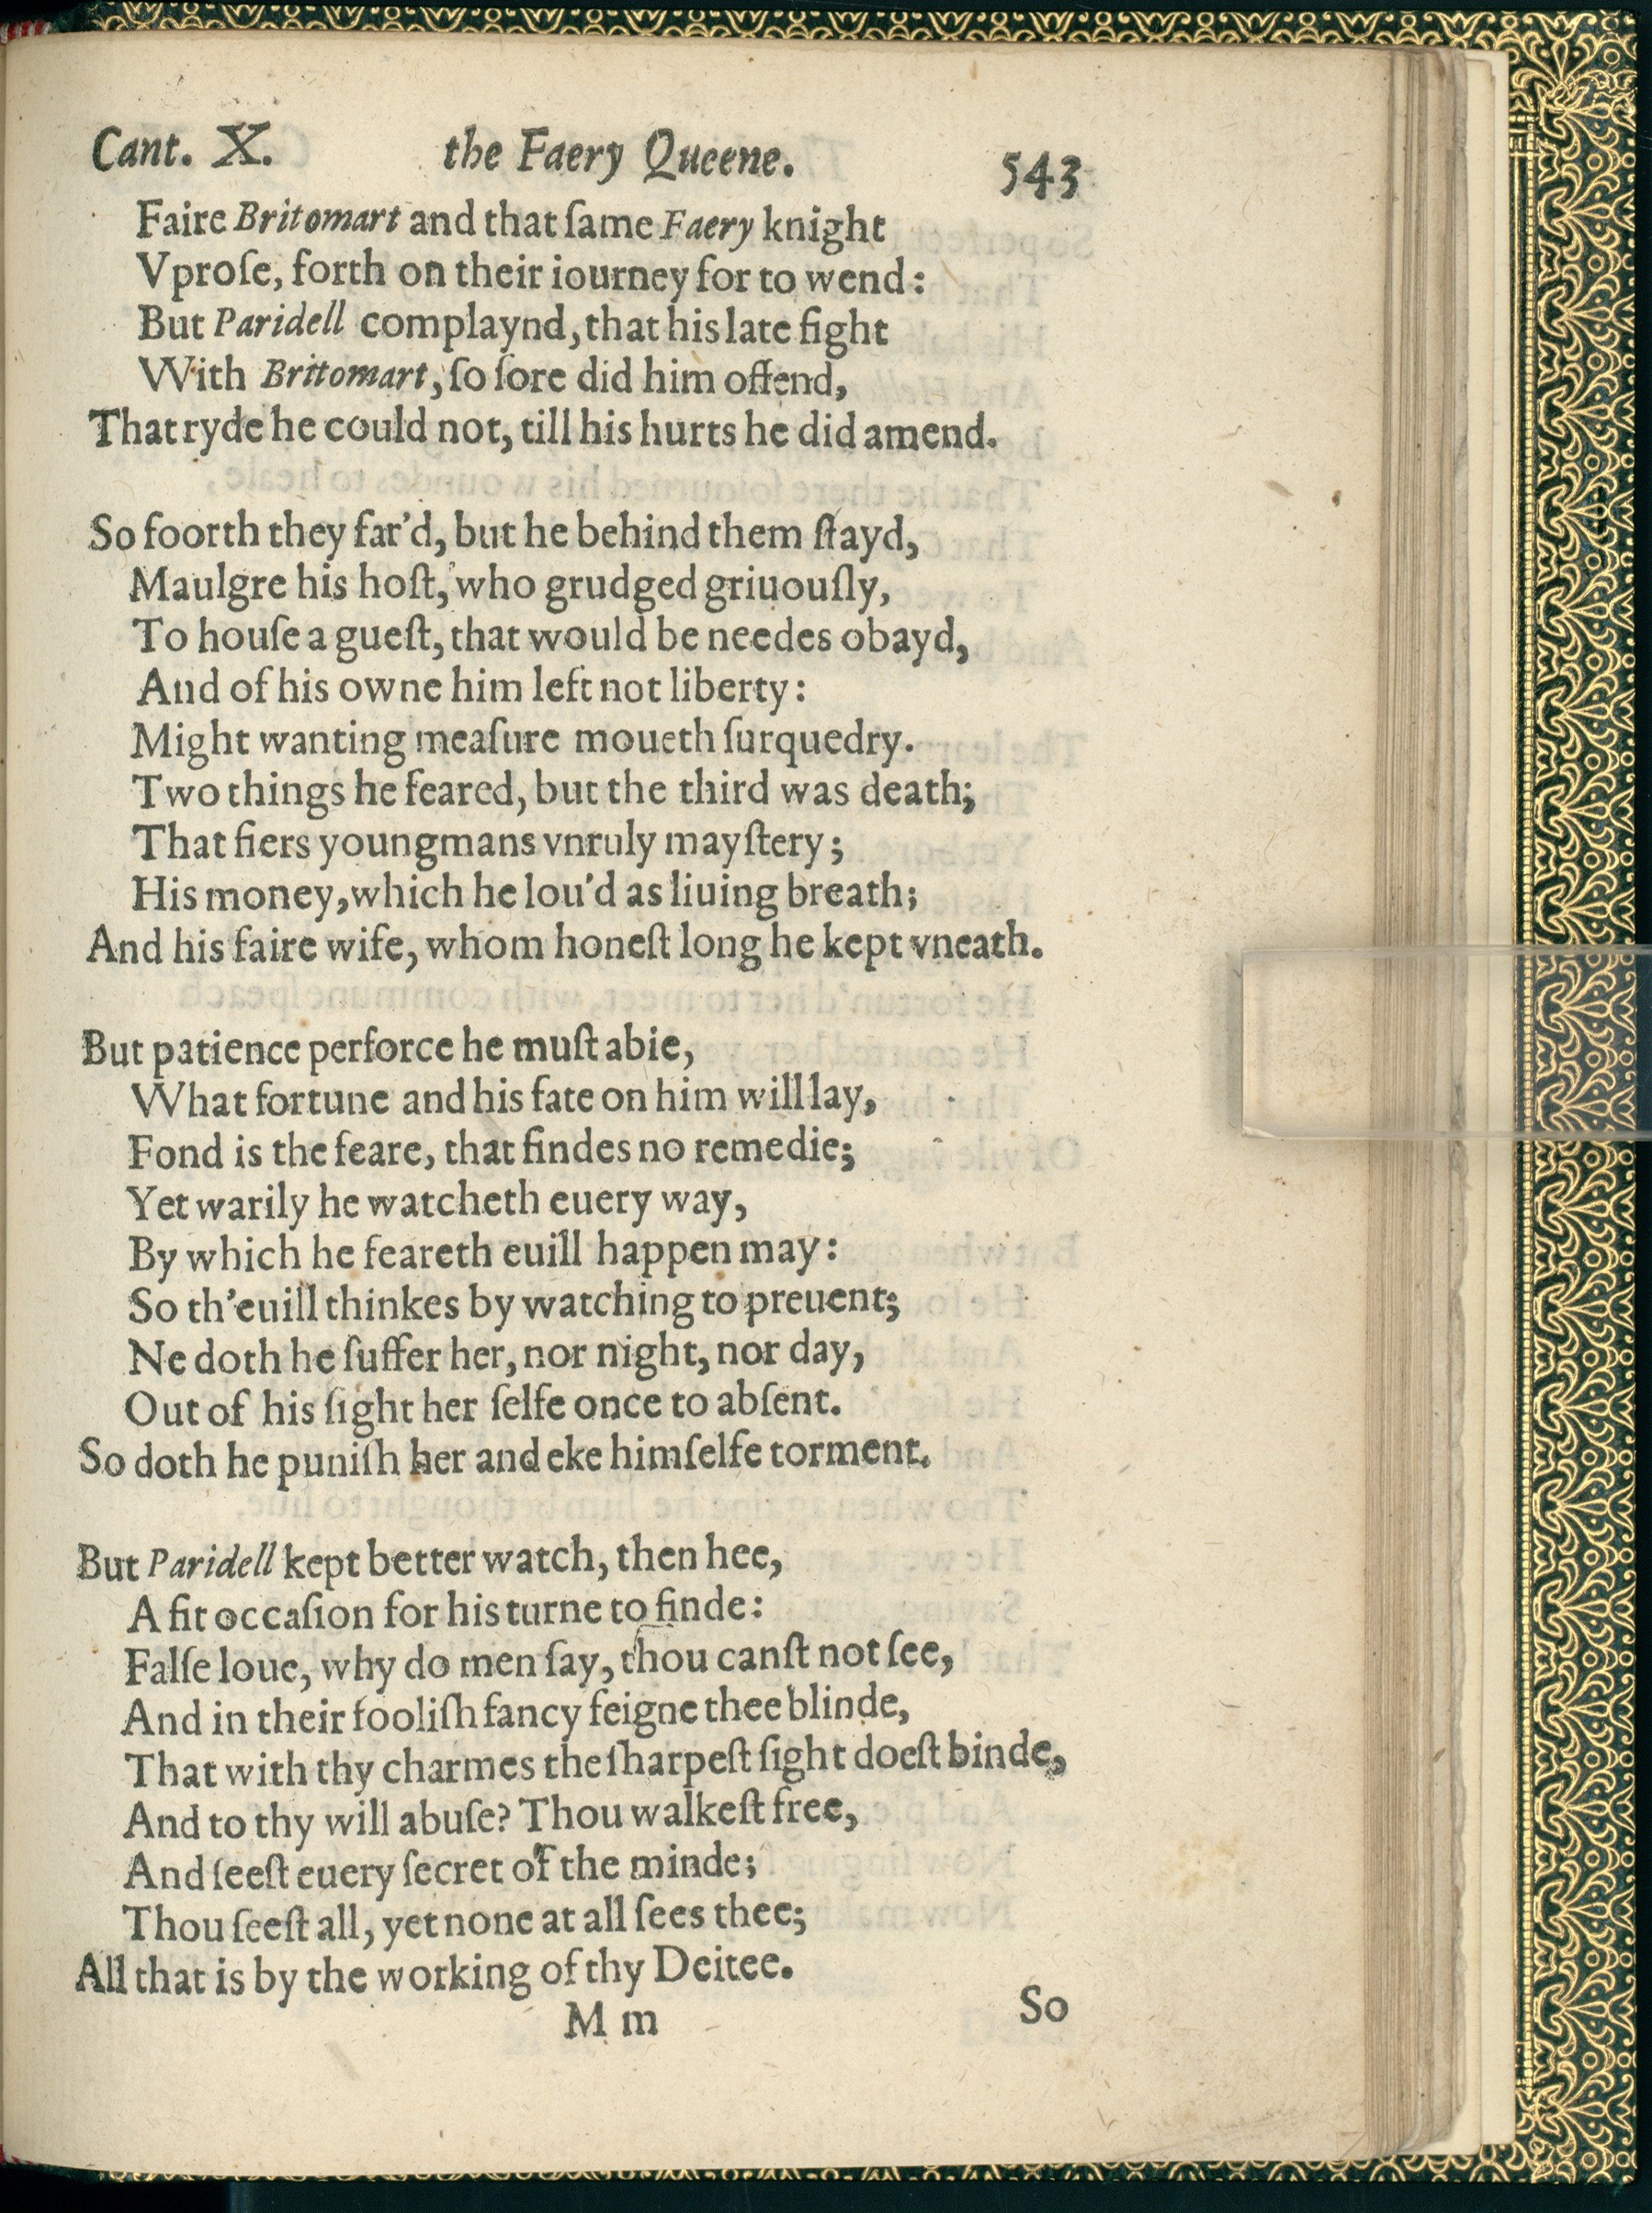 Cant. X. the Faery Queene. 543
Faire Britomart and that ſame Faery knight
Vproſe, forth on their iourney for to wend:
But Paridell complaynd, that his late fight
With Britomart, ſo ſore did him offend,
That ryde he could not, till his hurts he did amend.
So foorth they far'd, but he behind them ſtayd,
Maulgre his hoſt, who grudged griuouſly,
To houſe a gueſt, that would be needes obayd,
And of his owne him left not liberty:
Might wanting meaſure moueth ſurquedry.
Two things he feared, but the third was death;
That fiers youngmans vnruly mayſtery;
His money, which he lou'd as liuing breath;
And his faire wife, whom honeſt long he kept vneath.
But patience perforce he muſt abie,
What fortune and his fate on him will lay,
Fond is the feare, that findes no remedie;
Yet warily he watcheth euery way,
By which he feareth euill happen may:
So th'euill thinkes by watching to preuent;
Ne doth he ſuffer her, nor night, nor day,
Out of his ſight her ſelfe once to abſent.
So doth he puniſh her and eke himſelfe torment.
But Paridell kept better watch, then hee,
A fit occaſion for his turne to finde:
Falſe loue, why do men ſay, thou canſt not ſee,
And in their fooliſh fancy feigne thee blinde,
That with thy charmes the ſharpeſt ſight doeſt binde,
And to thy will abuſe? Thou walkeſt free,
And ſeeſt euery ſecret of the minde;
Thou ſeeſt all, yet none at all ſees thee;
All that is by the working of thy Deitee.
M m So